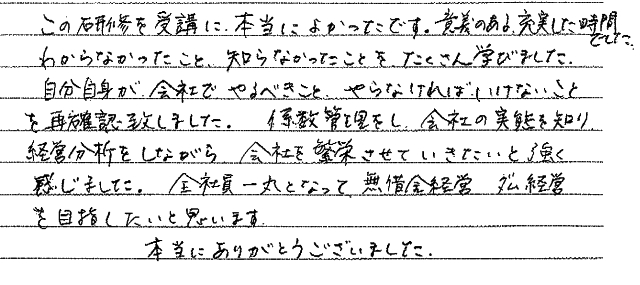 この研修を受講し、本当によかったです。意義のある充実した時間でした。
わからなかったこと、知らなかったことを、たくさん学びました。
自分自身が、会社でやるべきこと、やらなければいけないこと
を再確認致しました。係数管理をし、会社の実態を知り、
経営分析をしながら会社を繁栄させていきたいと強く
感じました。全社員一丸となって無借金経営 ダム経営
を目指したいと思います。
本当にありがとうございました。